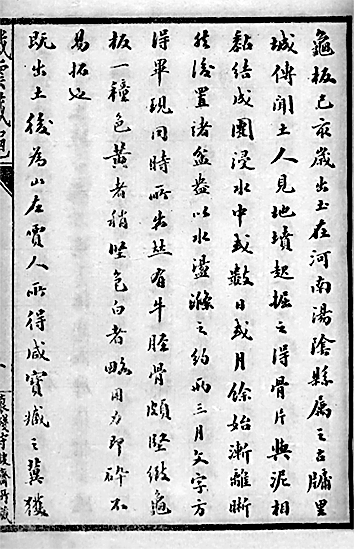 龜板己亥歲出土在河南湯陰縣屬之古牖里
城傳聞土人見地墳起掘之得骨片與泥相
黏結成團浸水中或數日或月餘始漸離晰
然後置諸盆盎以水盪滌之約兩三月文字方
得畢現同時所出並有牛脛骨頗堅緻龜
板一種色黃者稍堅色白者略用力即碎不
易拓也
既出土後為山左賈人所得咸寶藏之冀獲
鐵雲藏龜
抱殘守缺齋所藏